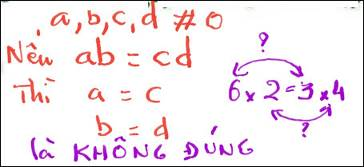 a, b, c, d # 0
Nếu ab = cd
Thì a = c
b = d
là KHÔNG ĐÚNG
?
6 x 2 = 3 x 4
?